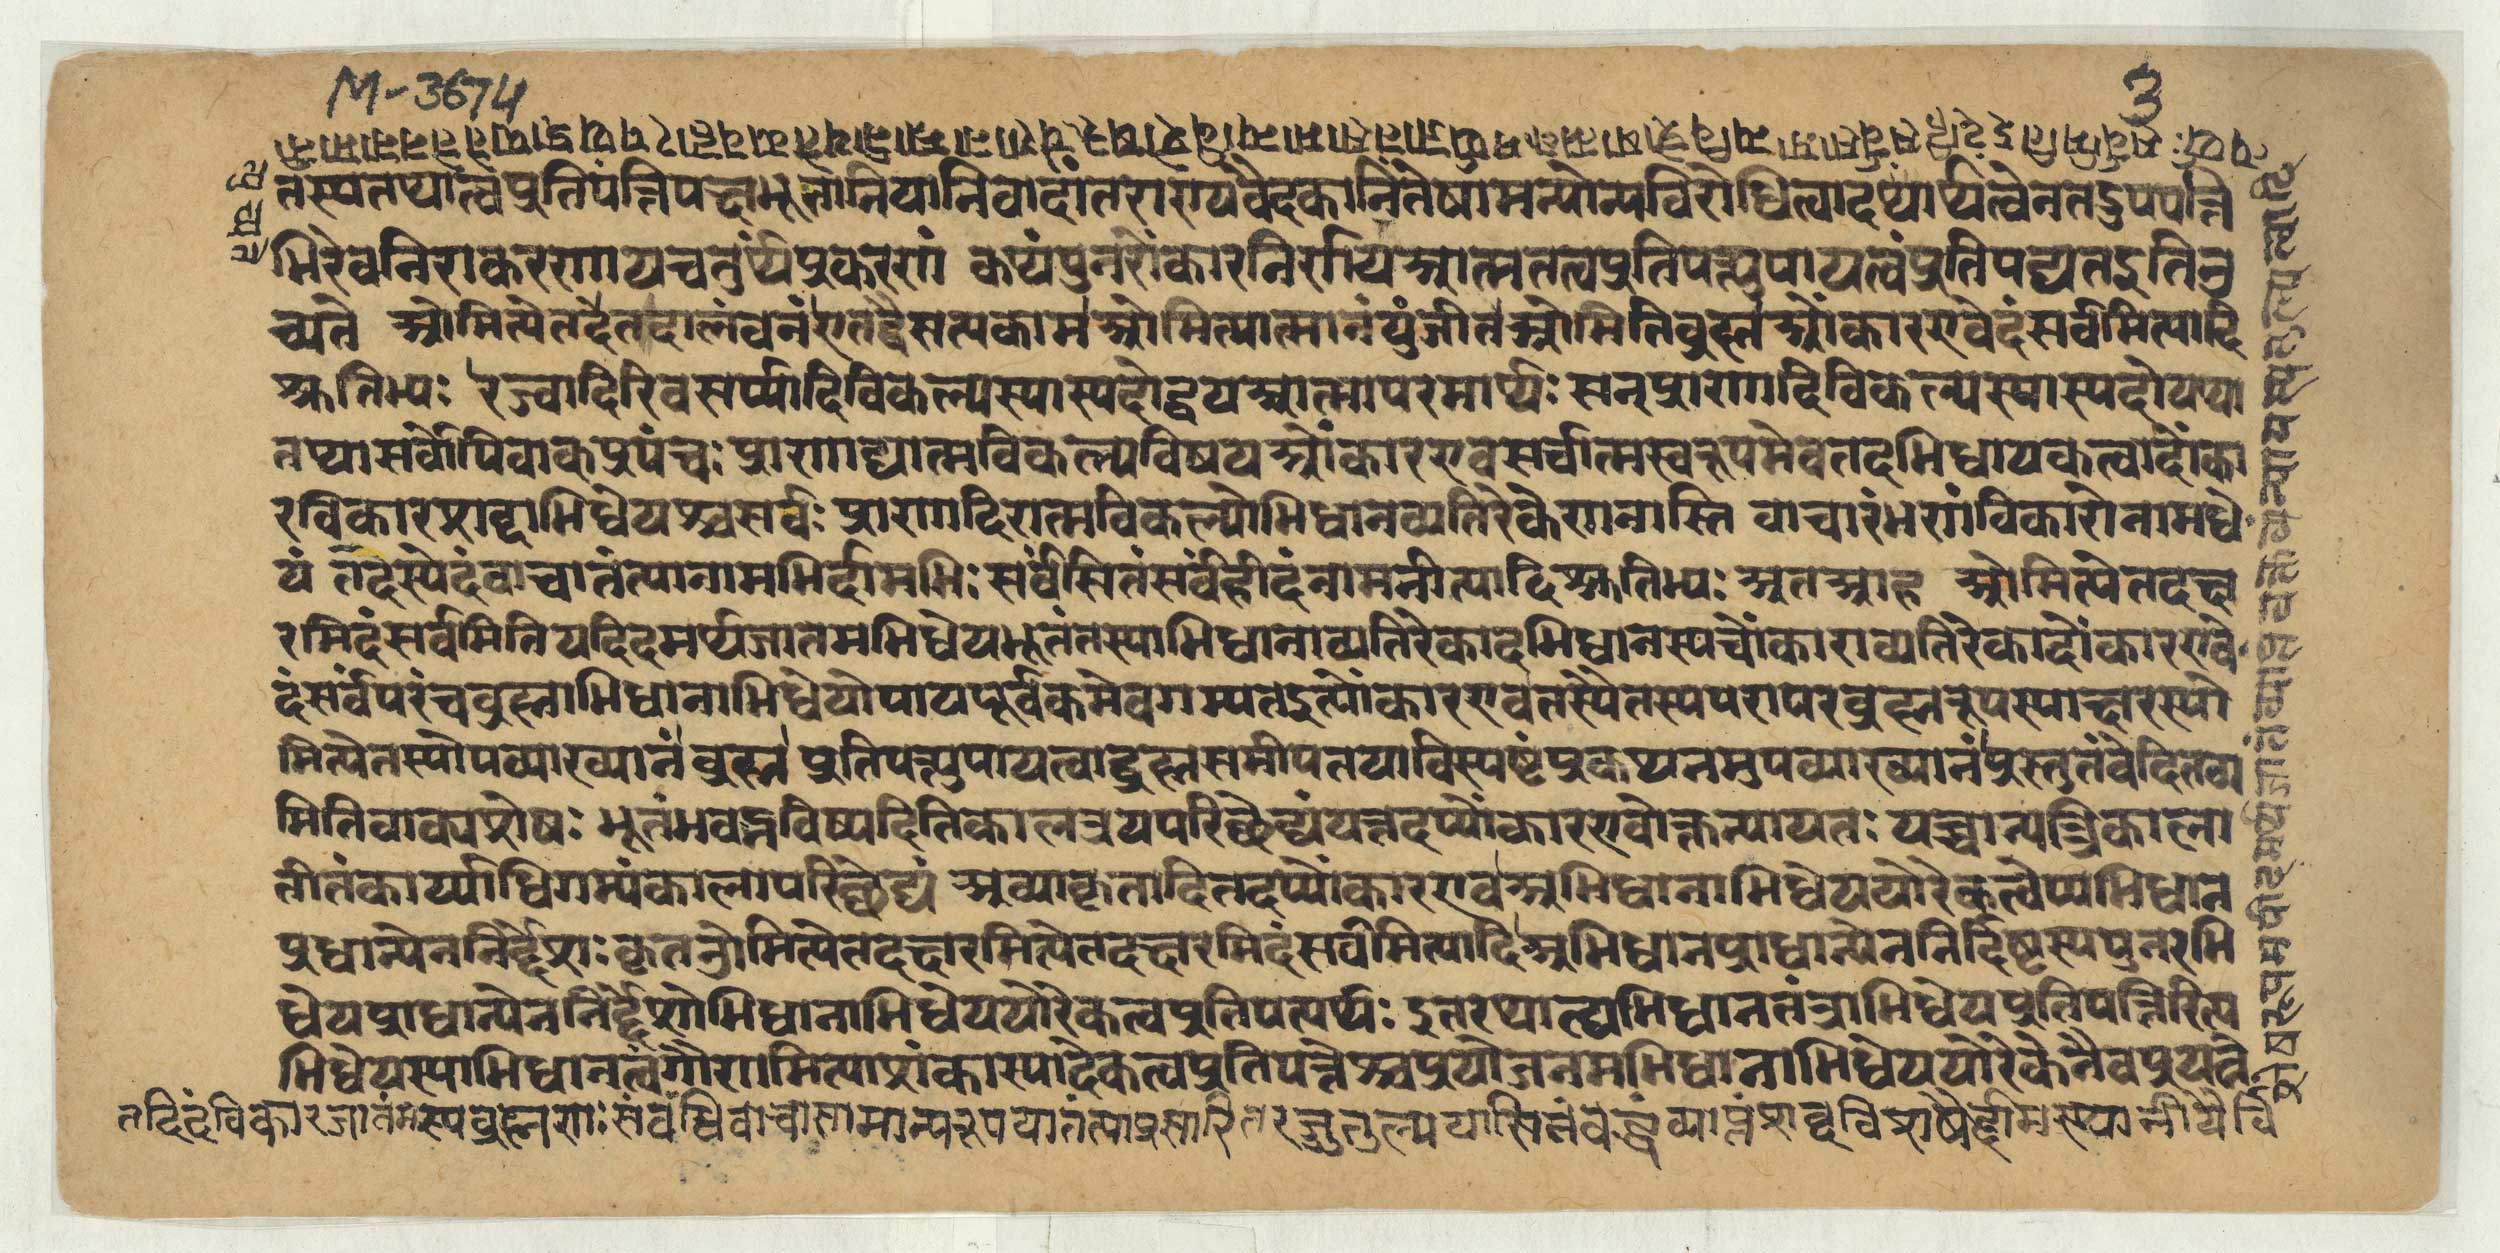 M-3674
3
तस्यतथात्वप्रतिपत्तिपक्षभूतानियानिवादांतराण्यवैदकानितेषामन्योन्यविरोधित्वादयथार्थत्वेनतदुपपत्ति
भिरेवनिराकरणायचतुर्थंप्रकरणं कथंपुनरोंकारनिर्णीयआत्मतत्वप्रतिपत्त्युपायत्वंप्रतिपद्यतइतिउ
च्यते ओमित्येतदेतदालंबनं एतद्वैसत्यकाम ओमित्यात्मानंयुंजीत ओमितिब्रह्म ओंकारएवेदंसर्वमित्यादि
श्रुतिभ्यः रज्वादिरिवसर्पादिविकल्पस्यास्पदोद्वयआत्मापरमार्थः सन्प्राणादिविकल्पस्यास्पदोयथा
तथासर्वोपिवाक्प्रपंचः प्राणाद्यात्मविकल्पविषयओंकारएवसर्वात्मस्वरूपमेवतदभिधायकत्वादोंका
रविकारशब्दाभिधेयश्चसर्वः प्राणादिरात्मविकल्पोभिधानव्यतिरेकेणनास्ति वाचारंभणंविकारोनामधे
यं तदस्येदंवाचातंत्यानामभिर्दामभिः सर्वंसितंसर्वंहीदंनामनीत्यादिश्रुतिभ्यः अतआह ओमित्येतदक्ष
रमिदंसर्वमितियदिदमर्थजातमभिधेयभूतंतस्याभिधानाव्यतिरेकादभिधानस्यचोंकाराव्यतिरेकादोंकारएवे
दंसर्वंपरंचब्रह्माभिधानाभिधेयोपायपूर्वकमेवगम्यतइत्योंकारएवतस्यैतस्यपरापरब्रह्मरूपस्याक्षरस्यो
मित्येतस्योपव्याख्यानं ब्रह्म प्रतिपत्त्युपायत्वाद्ब्रह्मसमीपतयाविस्पष्टंप्रकथनमुपव्याख्यानं प्रस्तुतंवेदितव्य
मितिवाक्यशेषः भूतंभवद्भविष्यदितिकालत्रयपरिछेद्यंयत्तदप्योंकारएवोक्तन्यायतः यच्चान्यत्त्रिकाला
तीतंकार्य्याधिगम्यंकालापरिछेद्यं अव्याकृतादितदप्योंकारएव अभिधानाभिधेययोरेकत्वेप्यभिधान
प्रधान्येननिर्द्देशः कृतओमित्येतदक्षरमित्येतदक्षरमिदंसर्वमित्यादि अभिधानप्राधान्येननिर्दिष्टस्यपुनरभि
धेयप्राधान्येननिर्द्देशोभिधानाभिधेययोरेकत्वप्रतिपत्यर्थः इतरथात्द्यभिधानतंत्राभिधेयप्रतिपत्तिरित्य
भिधेयस्याभिधानत्वंगौणमित्याशंकास्यादेकत्वप्रतिपत्तेश्चप्रयोजनमभिधानाभिधेययोरेकेनैवप्रयत्ने
तदिदंविकारजातमस्यब्रह्मणः संबंधिवाचासामान्यरूपयातंत्याप्रसारितरज्जुतुल्ययासितंबद्धंव्याप्तंशब्दविशेषैर्दामस्थानीयैर्वि